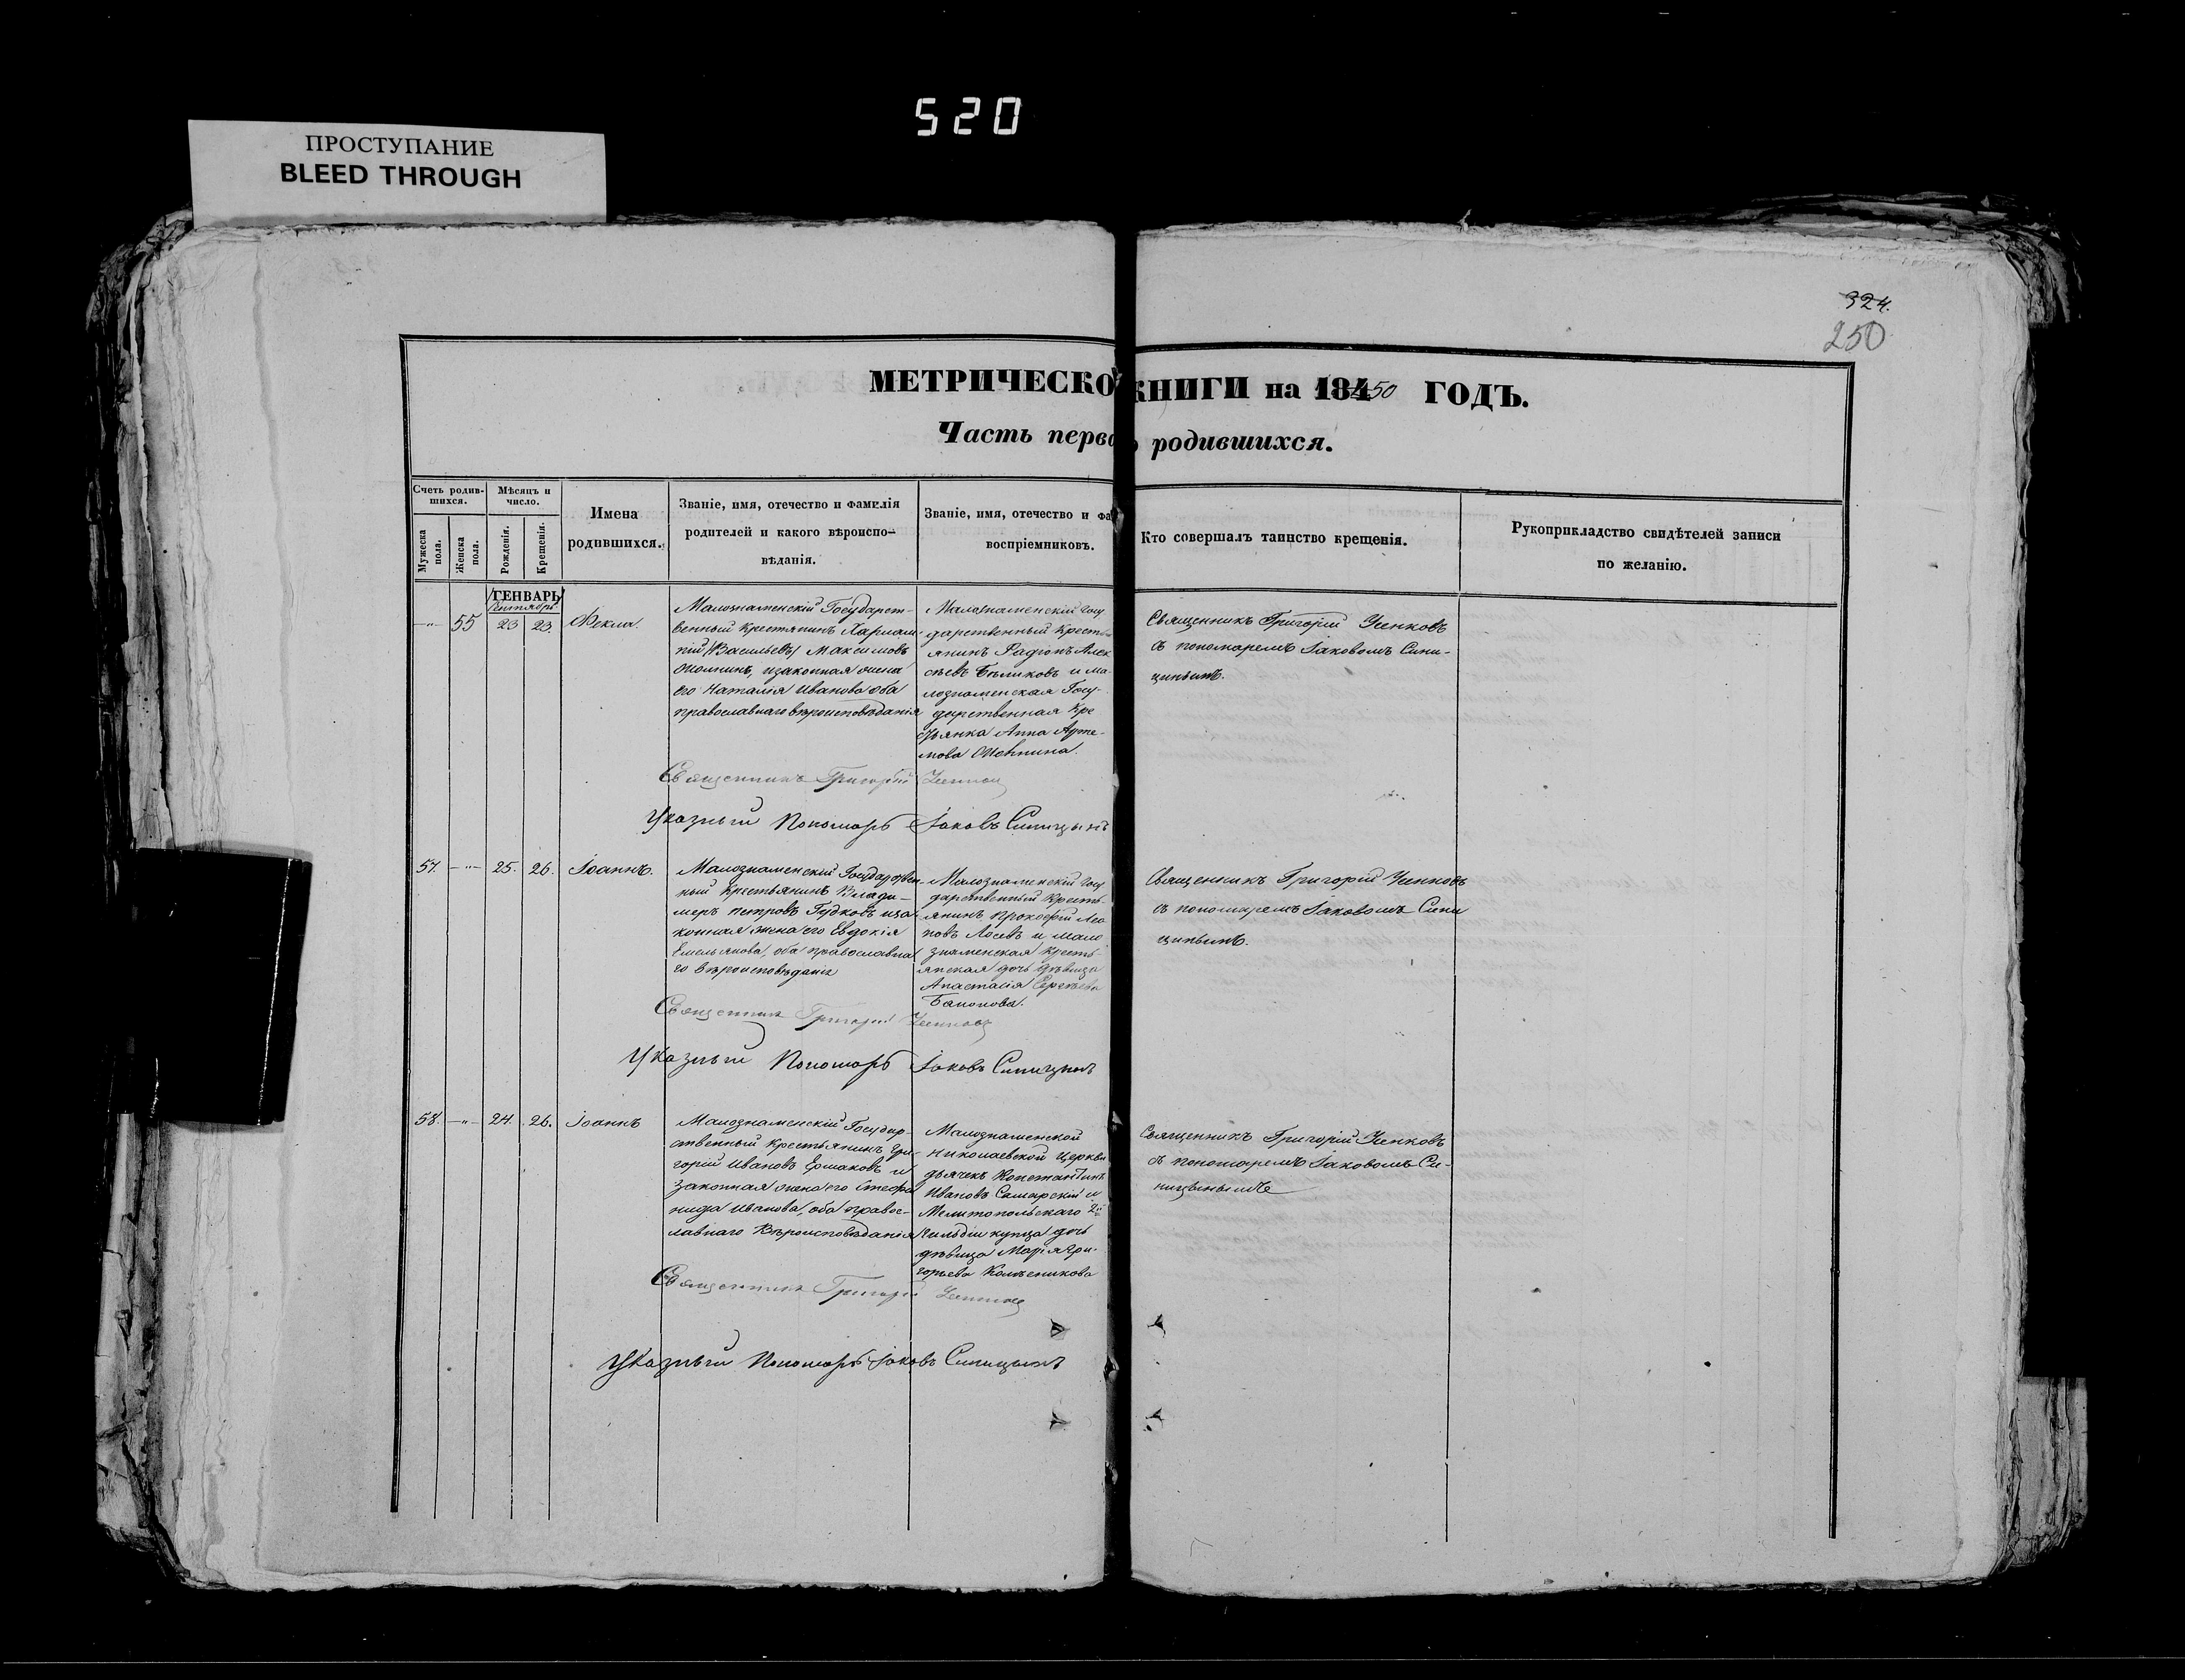 520
ПРОСТУПАНИЕ
BLEED THROUGH
324.
250
МЕТРИЧЕСКО КНИГИ на 1850 ГОДЪ.
Часть перво родившихся.
Счетъ родив-
шихся.
Мужеска пола.
Женска пола.
Мѣсяцъ и
число.
Рожденія.
Крещенія.
Имена
родившихся.
Званіе, имя, отечество и фамилія
родителей и какого вѣроиспо-
вѣданія.
Званіе, имя, отечество и фа
воспріемниковъ.
Кто совершалъ таинство крещенія.
Рукоприкладство свидѣтелей записи
по желанію.
ГЕНВАРЬ
Сентябрь
-"- 55 23 23. Ѳекла.
Малознаменскій Государст-
венный Крестянинъ Харлам-
пій (Васильевъ) Максимовъ
изаконная жена
его Наталія Иванова оба
православнаго вѣроисповѣданія
Малознаменскій Госу
дарственный Кресть
янинъ Радіонъ Алек
сѣевъ Бѣликовъ и ма-
лознаменская Госу-
дарственная Кре
стьянка Анна Арте-
мова
Священникъ Григорій Усенковъ
съ пономаремъ Іаковомъ Сини-
цинымъ.
Священникъ Григорій Усенковъ
Указный Пономарь Іаковъ Синицынъ
57. -"- 25. 26. Іоаннъ.
Малознаменскій Государствен
ный Крестьянинъ Влади-
меръ Петровъ Гудковъ иза
конная жена его Евдокія
Емельянова, оба православна
го вѣроисповѣданія
Малознаменскій Госу
дарственный Кресть-
янинъ Прокофій Лео
новъ Лосевъ и мало
знаменская Кресть-
янская дочь дѣвица
Анастасія Сергѣева
Священникъ Григорій Усенковъ
съ пономаремъ Іаковомъ Сини
цинымъ.
Священникъ Григорій Усенковъ
Указный Пономарь Іаковъ Синицынъ
58. -"- 24. 26. Іоаннъ
Малознаменскій Государ-
ственный Крестьянинъ Гри-
горій Ивановъ Ермаковъ и
законная жена его Стефа
нида Иванова, оба правос-
лавнаго Вѣроисповѣданія
Малознаменской
Николаевской Церкви
дьячекъ Константинъ
Ивановъ Самарскій и
Мелитопольскаго 2й
Гильдіи купца дочь
дѣвица Марія Гри-
горьева Колесникова
Священникъ Григорій Усенковъ
съ пономаремъ Іаковомъ Си-
ницынымъ
Священникъ Григорій Усенковъ
Указный Пономарь Іаковъ Синицынъ